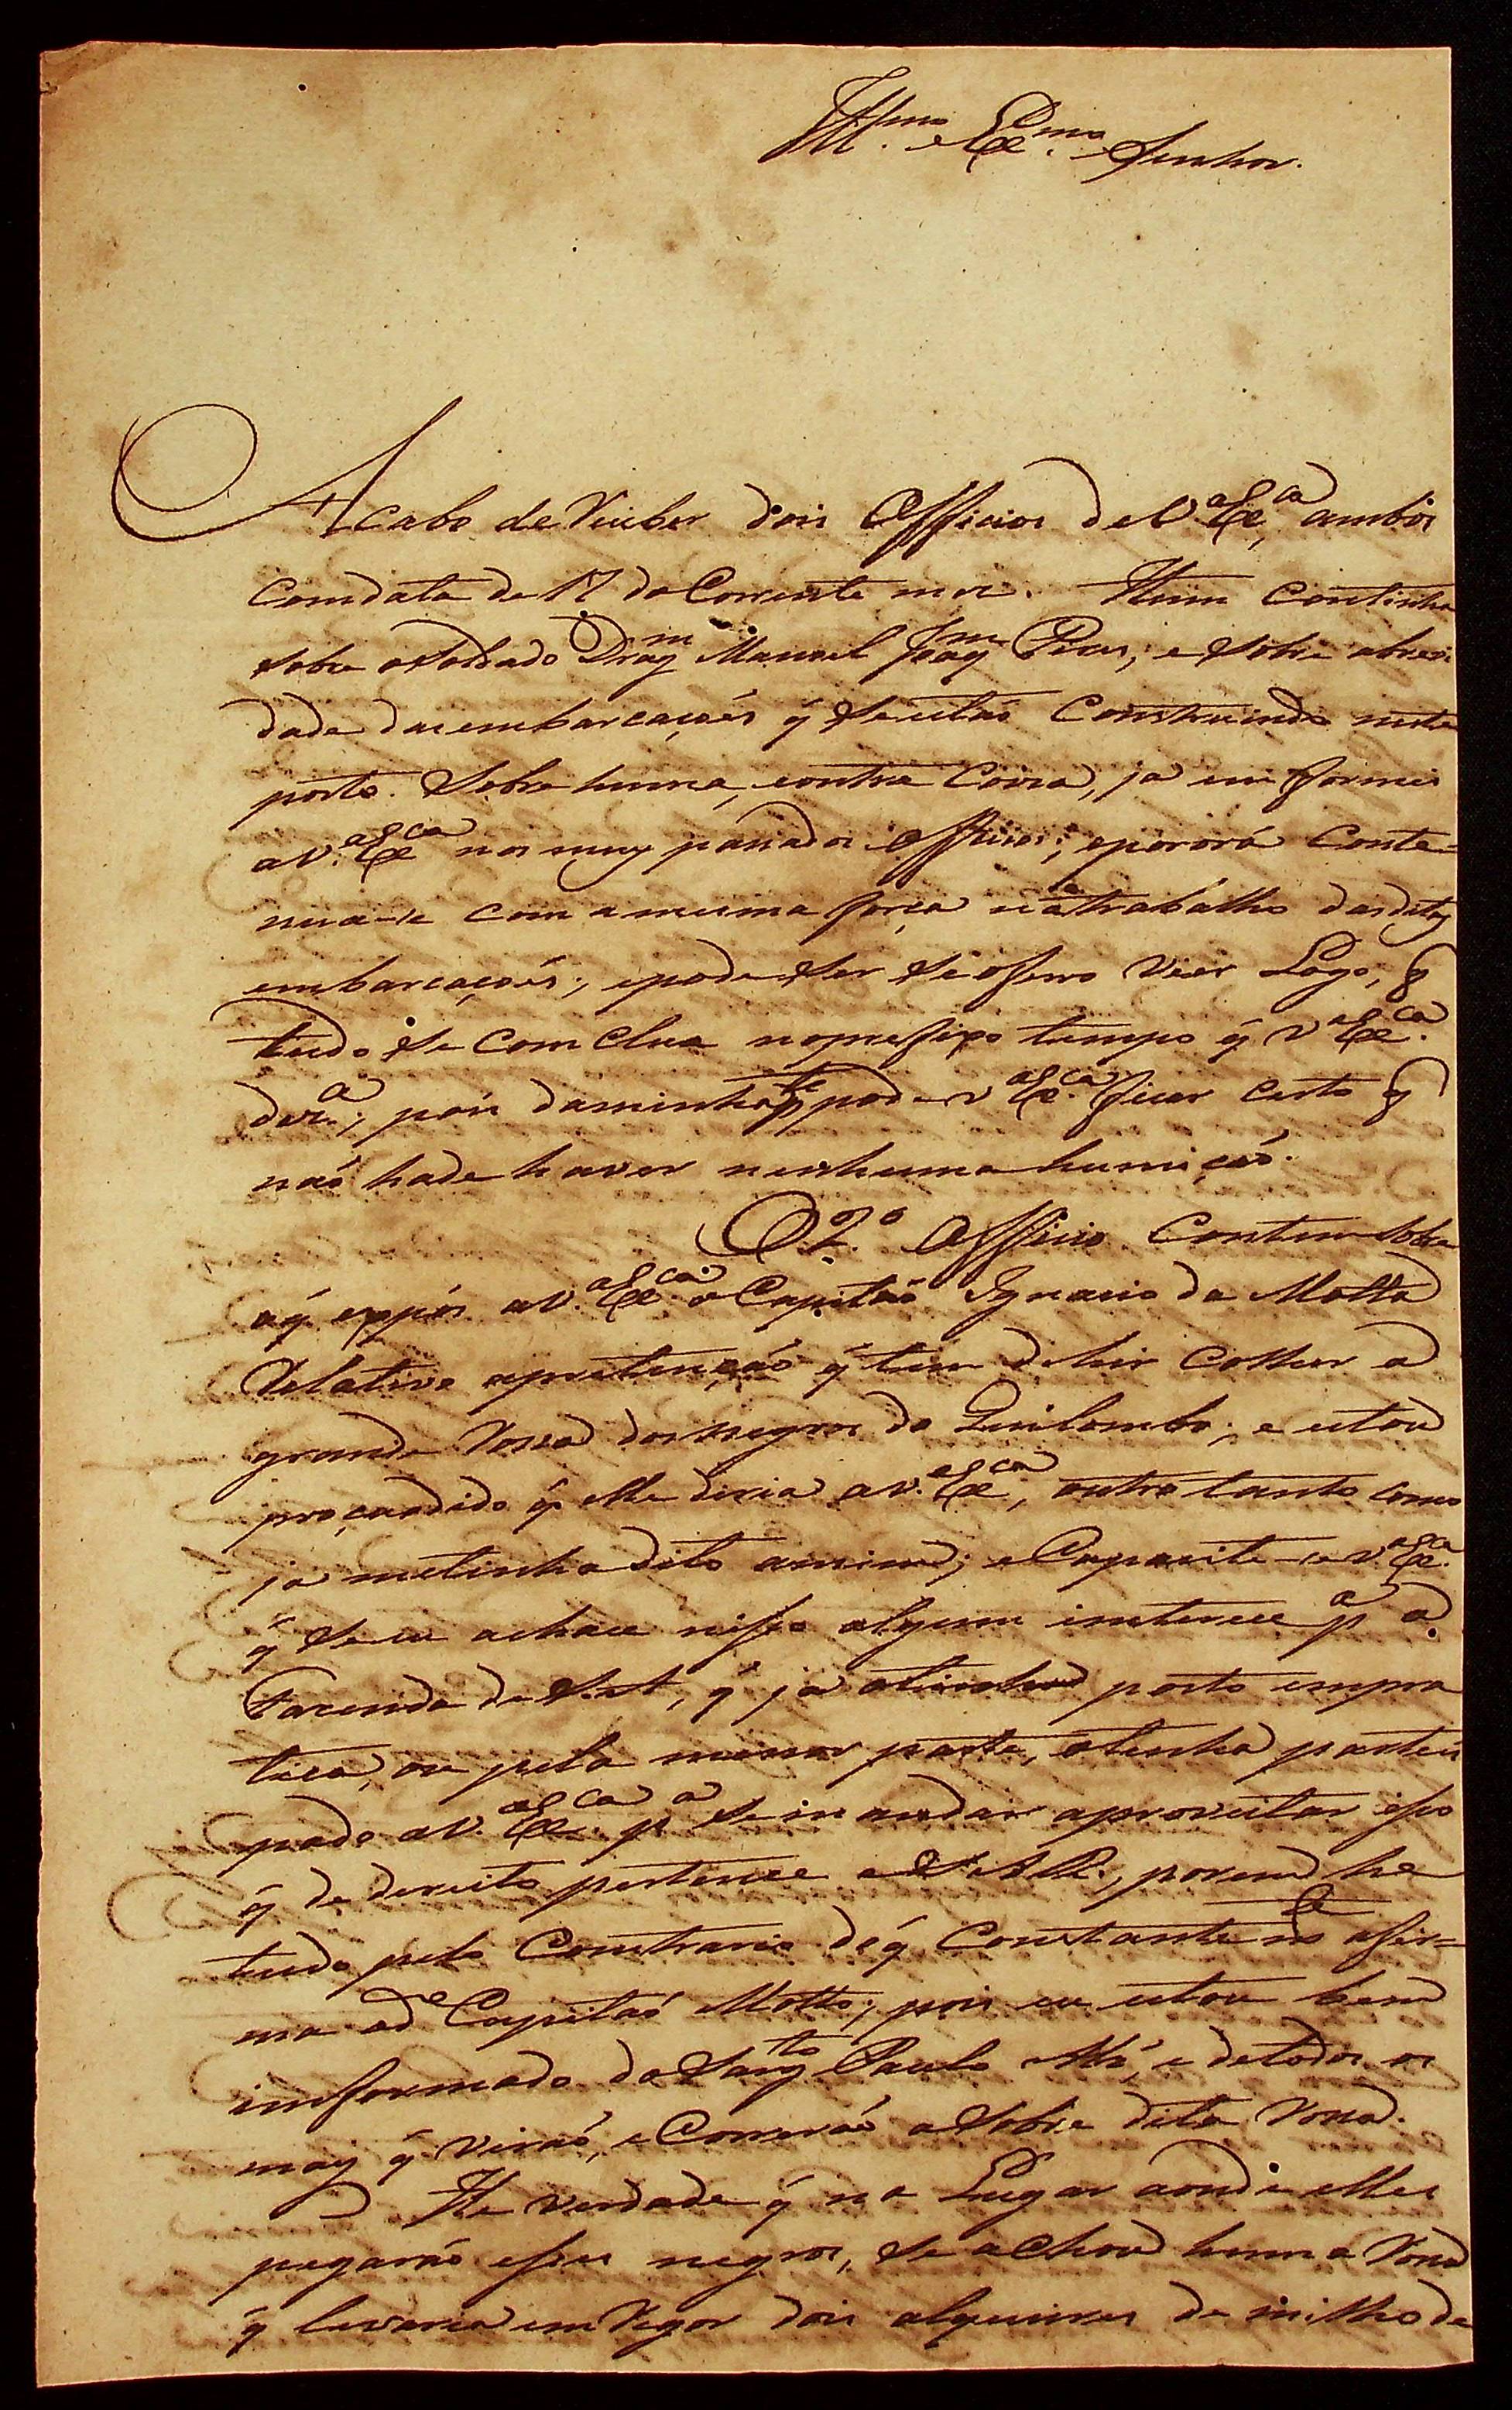 Ill.mo e Ex.mo Senhor.
Acabo de Reseber dois Officios de V.a Ex.ca, ambos
com data de 17 do Corrente mes. Hum continha
sobre o Soldado Drag.m Manoel Joaq.m Pires, e sobre a brevi
dade das embarcaçoẽs q̃ se estaõ Construindo neste
porto. Sobre huma, e outra Coiza, ja em formei
a V.a Ex.ca nos meuz passados officios; e por orá Conte=
nua-se com a mesma força no trabalho das ditaz
embarcaçoẽs; e pode ser se o ferro vier Logo, q
tudo se Com clua no presizo tempo q̃ V.a Ex.ca
dez.a; pois da minha p.te pode V.a Ex.ca ficar certo q
naõ hade haver nenhuma humiçaõ.
O 2.o Officio Contem sobre
o q̃ expos a V.a Ex.ca o Capitaõ Ignacio da Motta
Relativo a pretençaõ q̃ tem de hir Colher a
grande Rossa dos negros do Quilombo; e estou
proçuadido q̃ elle diria a V.a Ex.ca, outro tanto como
ja me tinha dito a mim; e Capacite-se V.a Ex.ca
q̃ se eu achace nisso algum interece p.a a
Fazenda de S. A, q̃ ja o tinha posto em pra
tica, ou pela menor parte, o tenha partesi
pado a V.a Ex.ca p.a se mandar aproveitar isso
q̃ de dereito pertence a S. A. R., porem he
tudo pelo Contrario do q̃ Constantem.te afir=
ma o d.o Capitaõ Motta; pois eu estou bem
informado do Sarg.to Paulo Miz̃, e de todos os
maiz q̃ viraõ, e Correraõ a sobre dita Rossa.
He verdade q̃ no Lugar aonde elles
pegaraõ esses negros, se achou huma Rossa
q̃ levaria em Rigor dois alqueires de milho de